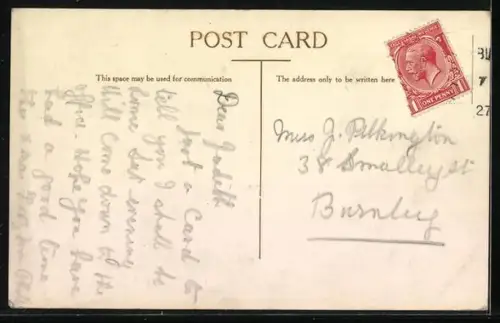 POST CARD
This space may be used for communication
The address only to be written here
ONE PENNY
1 1
BU
7
27
Miss J. Pilkington
38 Smalley st
Burnley
Dear Judith
Just a Card to
tell you I shall be
home Sat evening
Will come down to the
office. Hope you have
had a good time